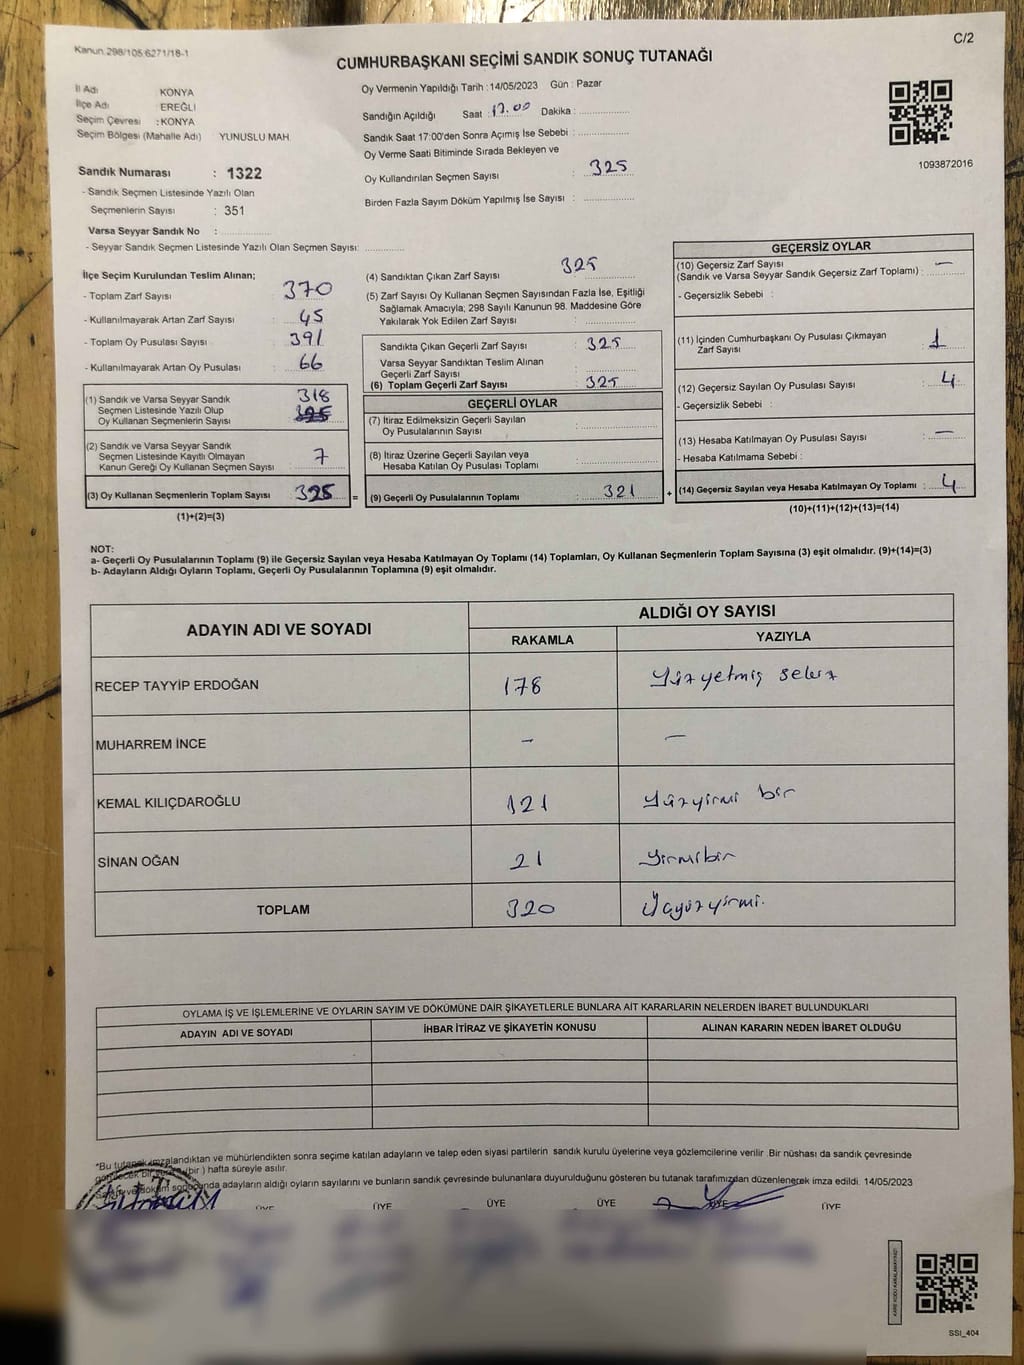 Kanun.298/105.6271/18-1
C/2
CUMHURBAŞKANI SEÇİMİ SANDIK SONUÇ TUTANAĞI
İl Adı KONYA
İlçe Adı EREĞLİ
Seçim Çevresi : KONYA
Seçim Bölgesi (Mahalle Adı) YUNUSLU MAH.
Sandık Numarası : 1322
- Sandık Seçmen Listesinde Yazılı Olan
Seçmenlerin Sayısı : 351
Varsa Seyyar Sandık No :
- Seyyar Sandık Seçmen Listesinde Yazılı Olan Seçmen Sayısı:
Oy Vermenin Yapıldığı Tarih : 14/05/2023 Gün : Pazar
Sandığın Açıldığı Saat : 17.00 Dakika :
Sandık Saat 17:00'den Sonra Açımış İse Sebebi :
Oy Verme Saati Bitiminde Sırada Bekleyen ve
Oy Kullandırılan Seçmen Sayısı : 325
Birden Fazla Sayım Döküm Yapılmış İse Sayısı :
1093872016
İlçe Seçim Kurulundan Teslim Alınan;
- Toplam Zarf Sayısı : 370
- Kullanılmayarak Artan Zarf Sayısı : 45
- Toplam Oy Pusulası Sayısı : 391
- Kullanılmayarak Artan Oy Pusulası : 66
(1) Sandık ve Varsa Seyyar Sandık 318
Seçmen Listesinde Yazılı Olup
Oy Kullanan Seçmenlerin Sayısı
(2) Sandık ve Varsa Seyyar Sandık
Seçmen Listesinde Kayıtlı Olmayan
Kanun Gereği Oy Kullanan Seçmen Sayısı : 7
(3) Oy Kullanan Seçmenlerin Toplam Sayısı : 325 =
(1)+(2)=(3)
(4) Sandıktan Çıkan Zarf Sayısı : 325
(5) Zarf Sayısı Oy Kullanan Seçmen Sayısından Fazla İse, Eşitliği
Sağlamak Amacıyla; 298 Sayılı Kanunun 98. Maddesine Göre
Yakılarak Yok Edilen Zarf Sayısı :
Sandıkta Çıkan Geçerli Zarf Sayısı : 325
Varsa Seyyar Sandıktan Teslim Alınan
Geçerli Zarf Sayısı :
(6) Toplam Geçerli Zarf Sayısı : 325
GEÇERLİ OYLAR
(7) İtiraz Edilmeksizin Geçerli Sayılan
Oy Pusulalarının Sayısı :
(8) İtiraz Üzerine Geçerli Sayılan veya
Hesaba Katılan Oy Pusulası Toplamı :
(9) Geçerli Oy Pusulalarının Toplamı : 321 +
GEÇERSİZ OYLAR
(10) Geçersiz Zarf Sayısı
(Sandık ve Varsa Seyyar Sandık Geçersiz Zarf Toplamı) : —
- Geçersizlik Sebebi :
(11) İçinden Cumhurbaşkanı Oy Pusulası Çıkmayan
Zarf Sayısı : 1
(12) Geçersiz Sayılan Oy Pusulası Sayısı : 4
- Geçersizlik Sebebi :
(13) Hesaba Katılmayan Oy Pusulası Sayısı : —
- Hesaba Katılmama Sebebi :
(14) Geçersiz Sayılan veya Hesaba Katılmayan Oy Toplamı : 4
(10)+(11)+(12)+(13)=(14)
NOT:
a- Geçerli Oy Pusulalarının Toplamı (9) ile Geçersiz Sayılan veya Hesaba Katılmayan Oy Toplamı (14) Toplamları, Oy Kullanan Seçmenlerin Toplam Sayısına (3) eşit olmalıdır. (9)+(14)=(3)
b- Adayların Aldığı Oyların Toplamı, Geçerli Oy Pusulalarının Toplamına (9) eşit olmalıdır.
ADAYIN ADI VE SOYADI ALDIĞI OY SAYISI
RAKAMLA YAZIYLA
RECEP TAYYİP ERDOĞAN 178 Yüzyetmiş sekiz
MUHARREM İNCE - —
KEMAL KILIÇDAROĞLU 121 Yüzyirmi bir
SİNAN OĞAN 21 Yirmibir
TOPLAM 320 Üçyüzyirmi.
OYLAMA İŞ VE İŞLEMLERİNE VE OYLARIN SAYIM VE DÖKÜMÜNE DAİR ŞİKAYETLERLE BUNLARA AİT KARARLARIN NELERDEN İBARET BULUNDUKLARI
ADAYIN ADI VE SOYADI İHBAR İTİRAZ VE ŞİKAYETİN KONUSU ALINAN KARARIN NEDEN İBARET OLDUĞU
*Bu tutanak imzalandıktan ve mühürlendikten sonra seçime katılan adayların ve talep eden siyasi partilerin sandık kurulu üyelerine veya gözlemcilerine verilir. Bir nüshası da sandık çevresinde
görülecek bir yere (bir) hafta süreyle asılır.
Sayım ve döküm sonucunda adayların aldığı oyların sayılarını ve bunların sandık çevresinde bulunanlara duyurulduğunu gösteren bu tutanak tarafımızdan düzenlenerek imza edildi. 14/05/2023
ÜYE ÜYE ÜYE ÜYE ÜYE ÜYE
SSI_404